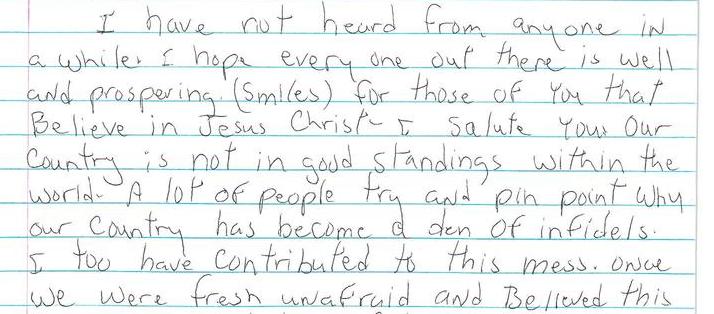 I have not heard from any one in
a while. I hope every one out there is well
and prospering. (Smiles) for those of You that
Believe in Jesus Christ- I salute You. Our
Country is not in good standings within the
world. A lot of people try and pin point Why
our Country has become a den of infidels.
I too have contributed to this mess. Once
We Were fresh unafraid and Believed this